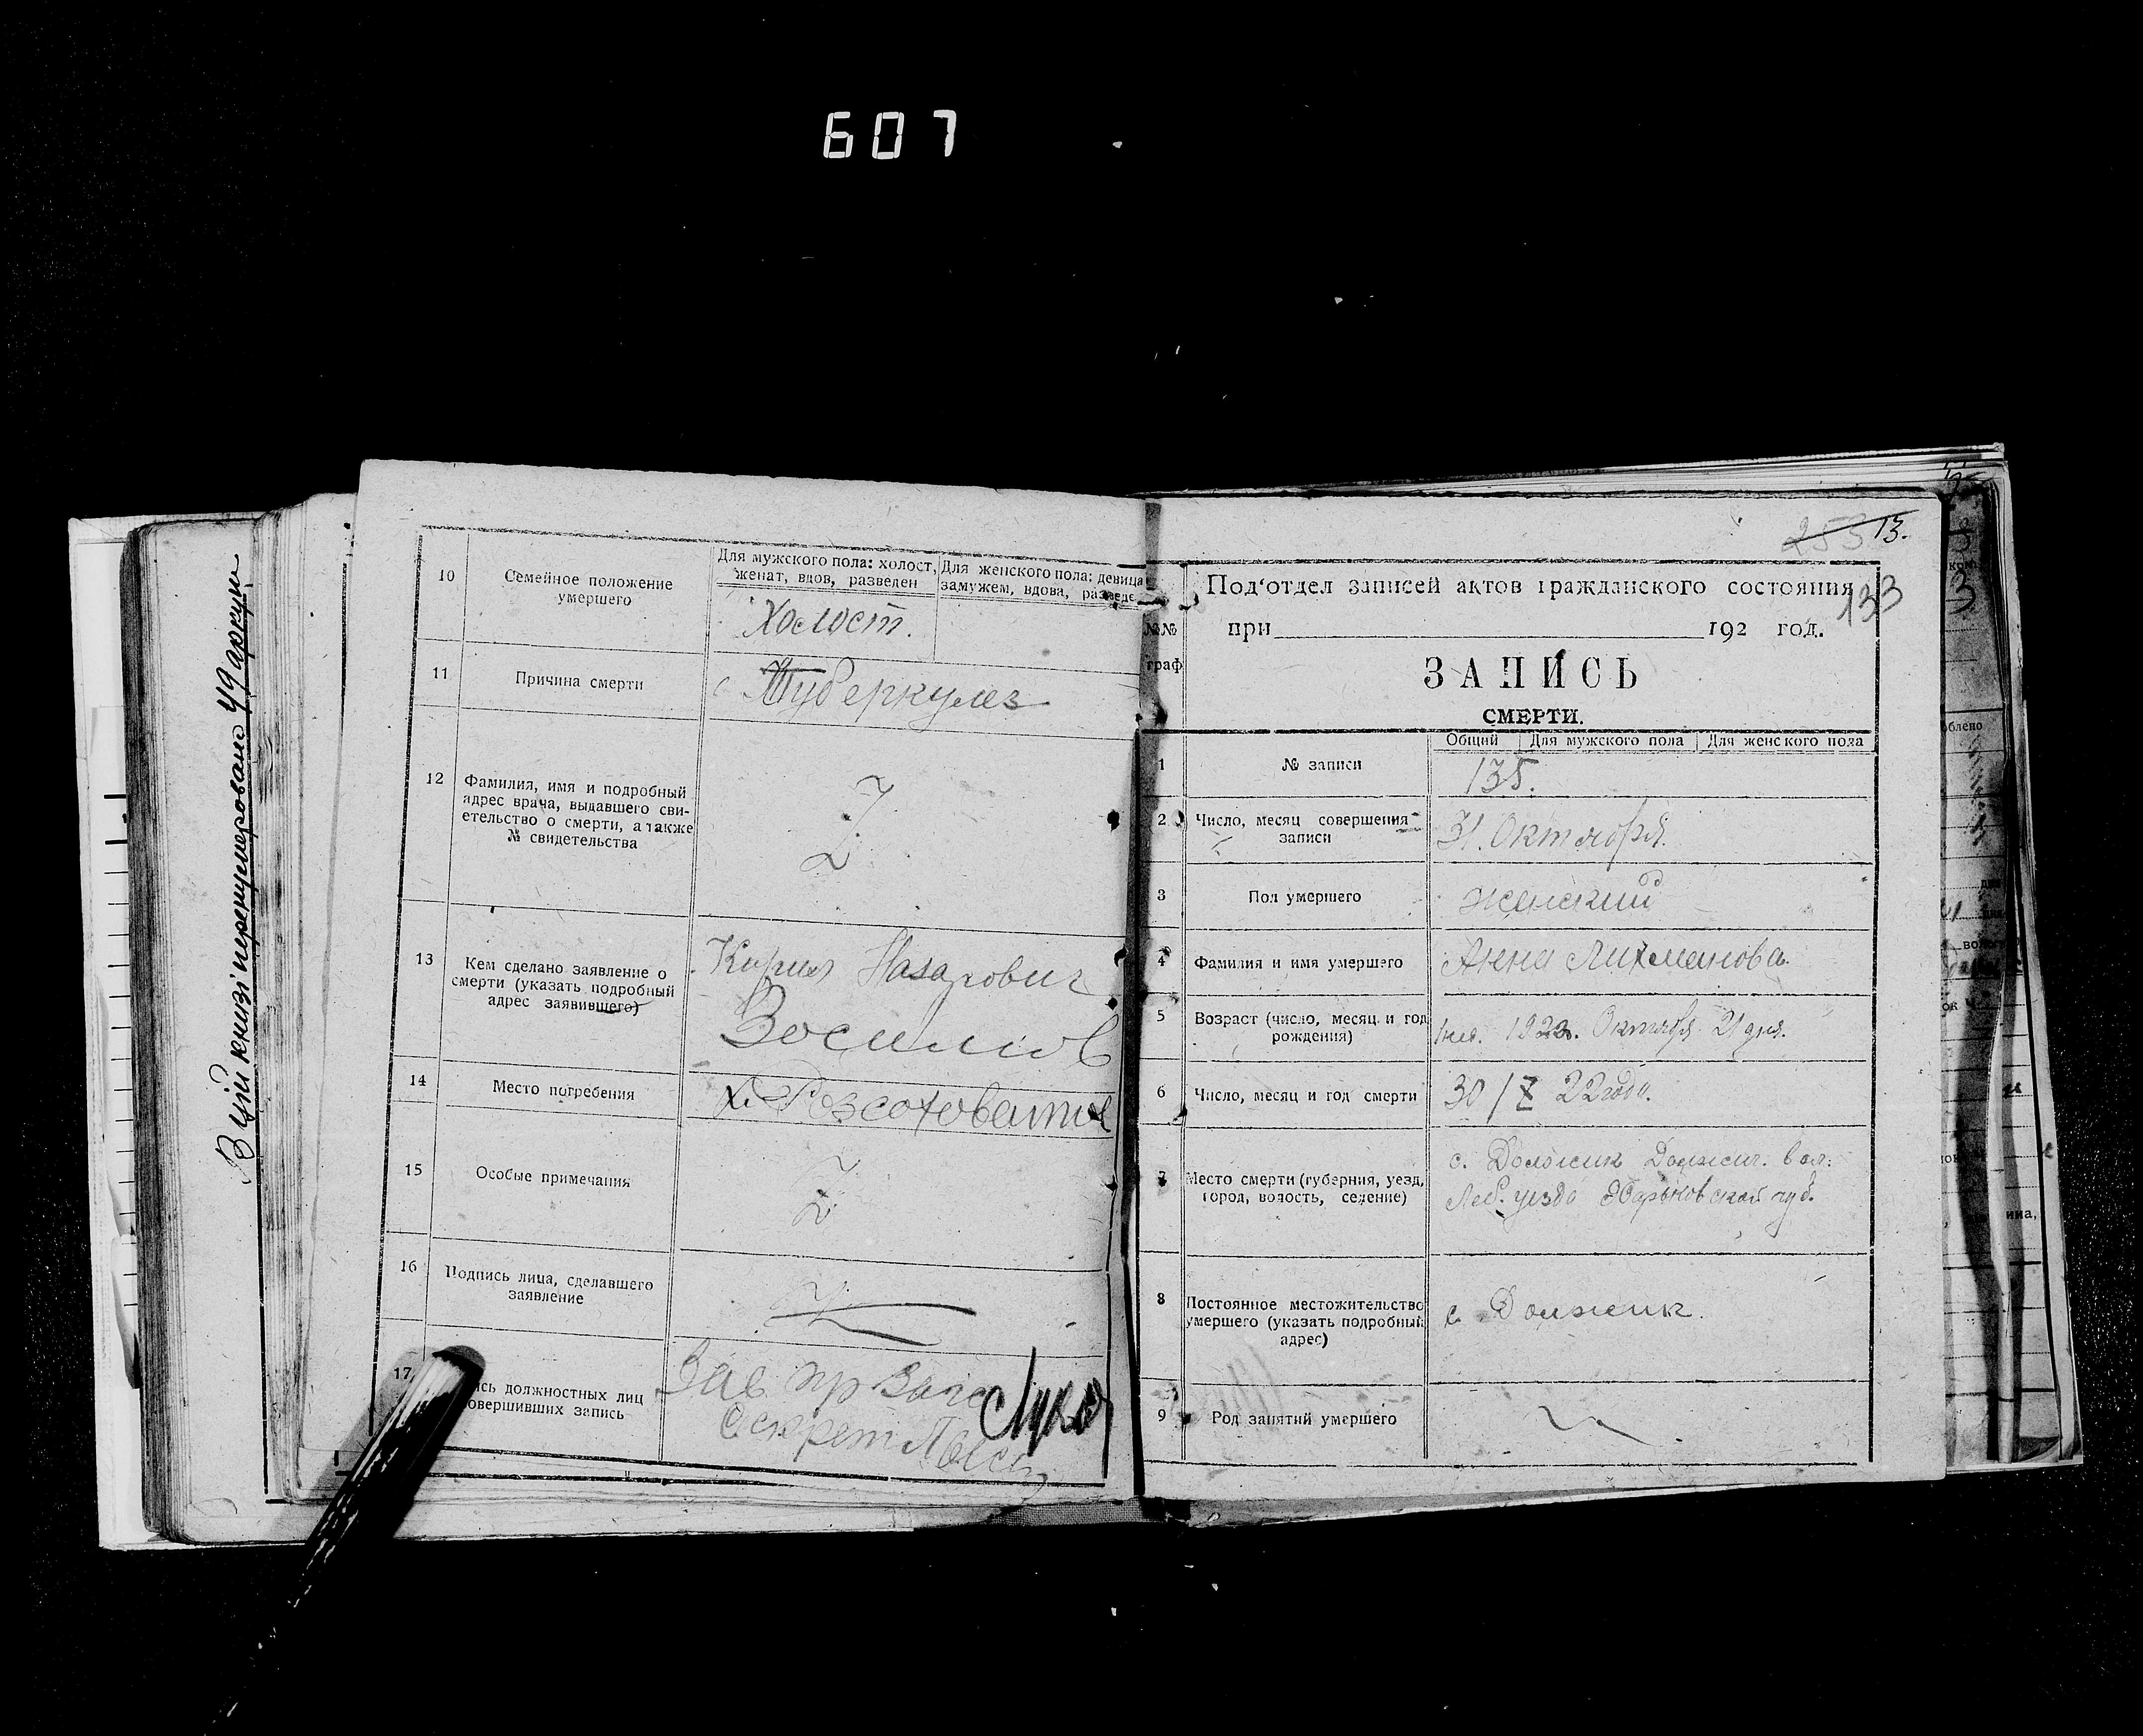 607
В цій книзі перенумеровано 49 аркуш
10
Семейное положение
умершего
Для мужского пола: холост,
женат, вдов, разведен
Для женского пола: девица
замужем, вдова, разведе
Холост.
11
Причина смерти
Туберкулез
12
Фамилия, имя и подробный
адрес врача, выдавшего сви-
етельство о смерти, а также
№ свидетельства
Z
13
Кем сделано заявление о
смерти (указать подробный
адрес заявившего)
Кирил Назарович
14
Место погребения
15
Особые примечания
Z
16
Подпись лица, сделавшего
заявление
Z
17
ись должностных лиц
овершивших запись
Зав
Секрет
253 13.
133
Под'отдел записей актов гражданского состояния
при 192 год.
№№
граф
ЗАПИСЬ
СМЕРТИ.
Общий Для мужского пола Для женского пола
1
№ записи
135.
2
Число, месяц совершения
записи
31. Октября.
3
Пол умершего
женский
4
Фамилия и имя умершего
Анна Лихманова.
5
Возраст (число, месяц и год
рождения)
1922. Октября 21 дня.
6
Число, месяц и год смерти
30/X 22 года.
7
Место смерти (губерния, уезд,
город, волость, селение)
с. Должик Должич. вол.
Леб. уезда Харьковской губ.
8
Постоянное местожительство
умершего (указать подробный
адрес)
с Должик.
9
Род занятий умершего